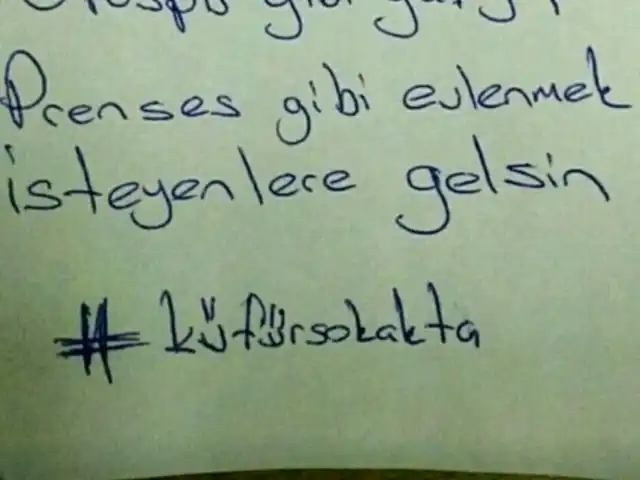 Prenses gibi evlenmek
isteyenlere gelsin
#küfürsokakta